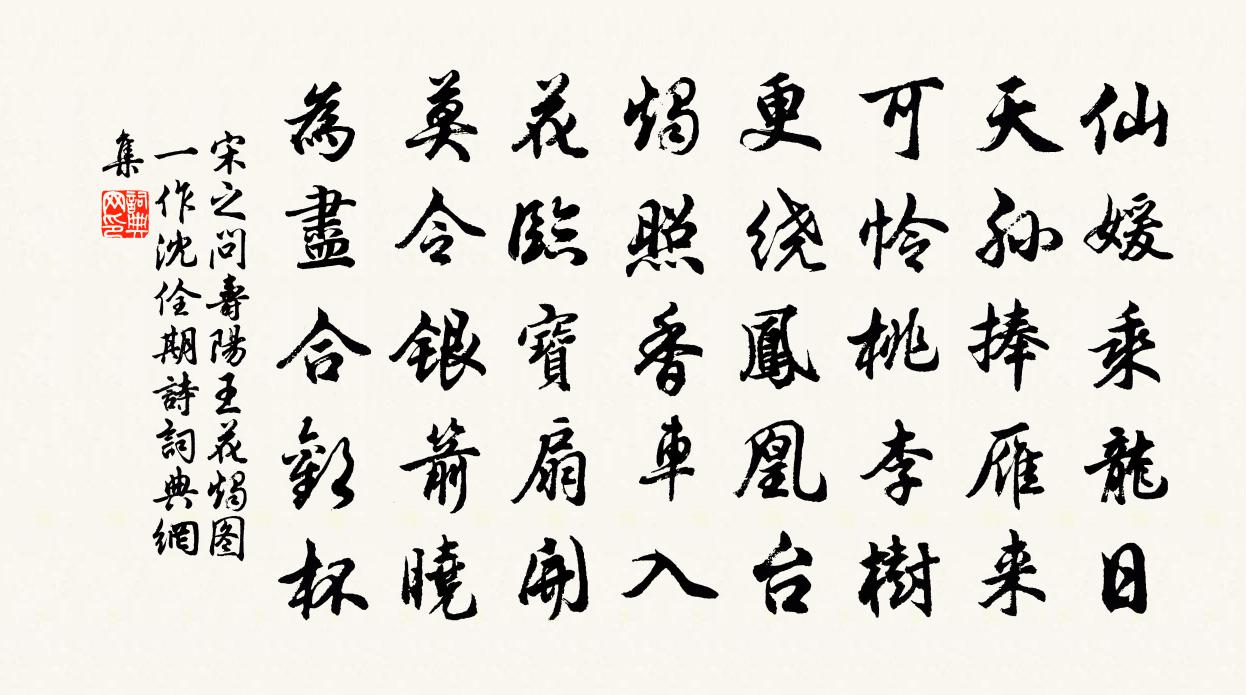 仙媛乘龍日
天孙捧雁来
可怜桃李樹
更绕鳳凰台
燭照香車入
花臨寶扇開
莫令銀箭曉
為盡合歡杯
宋之问壽陽王花燭图
一作沈佺期詩詞典網
集
詞典网印